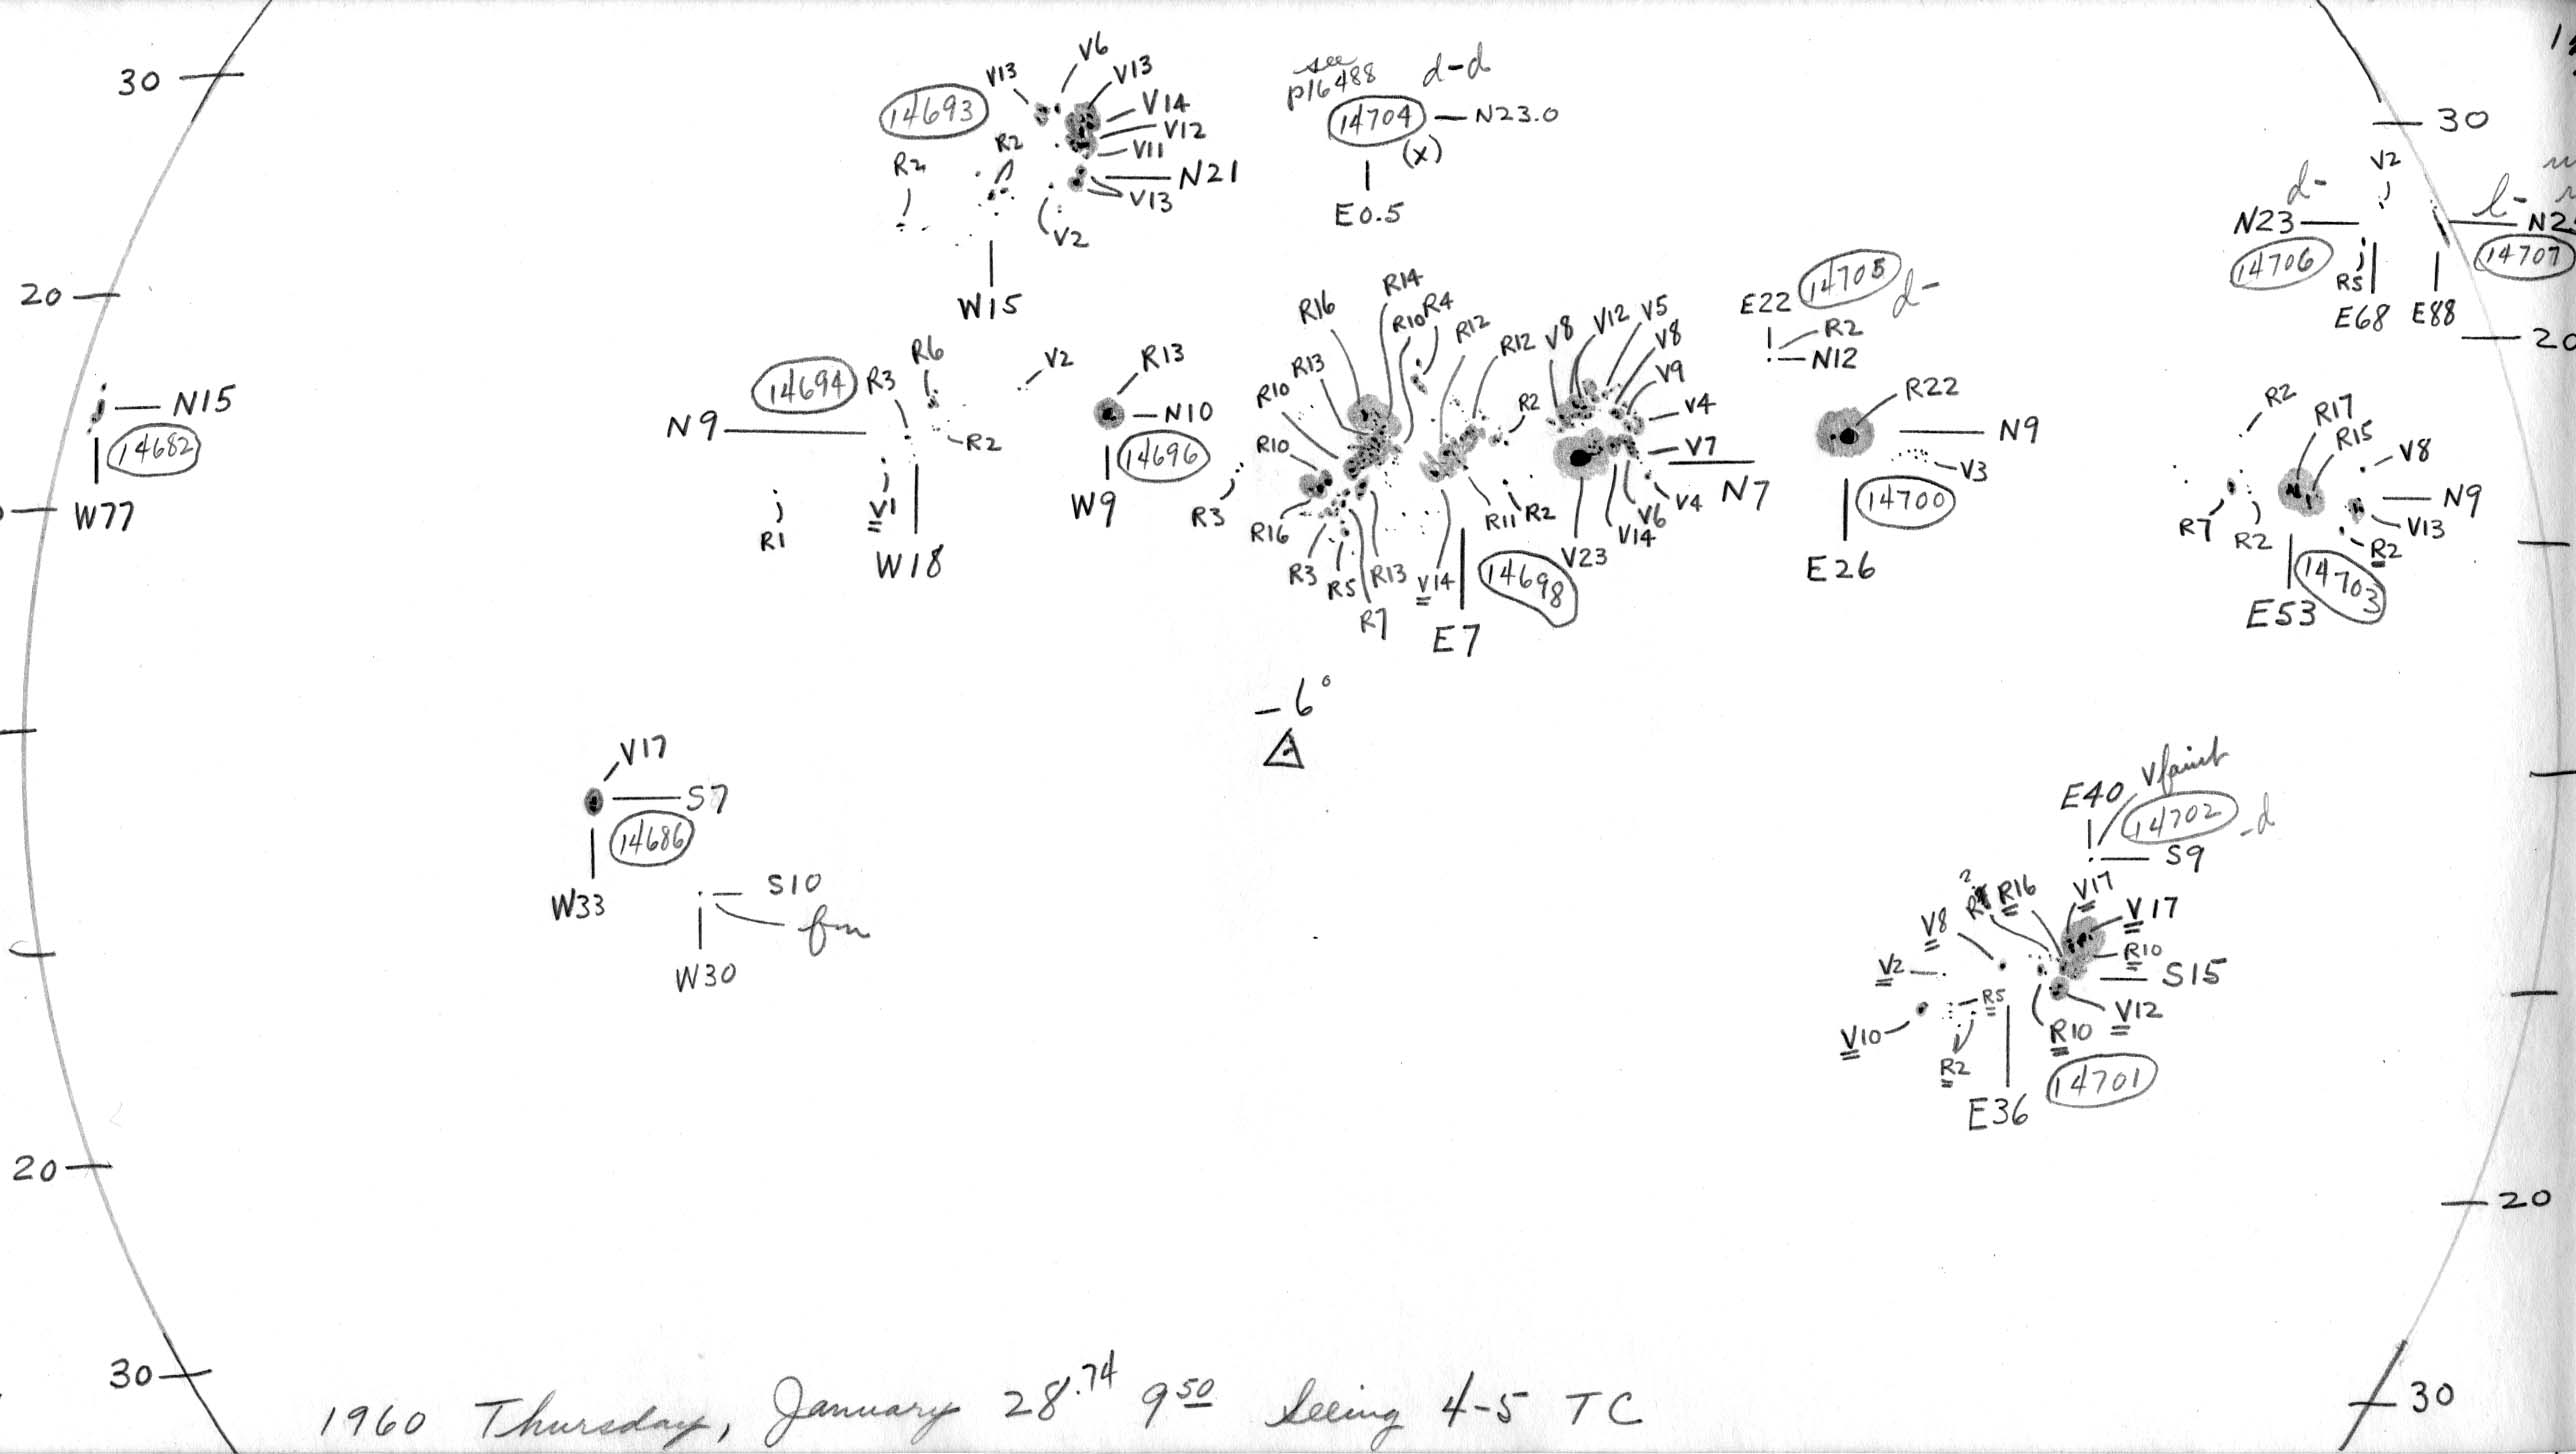 30
V6
V13
V13
14693
V14
V12
V11
N21
V13
R2
R2
V2
W15
see
p16488
d-d
14704
N23.0
(x)
E0.5
30
V2
d-
N23
14706
R5
E68
l-
14707
E88
20
20
N15
14682
W77
14694
R3
R6
V2
N9
R2
R1
V1
W18
R13
N10
14696
W9
R16
R14
R10
R4
R12
R12
R13
R10
R10
R3
R16
R3
R5
R13
R7
V14
E7
14698
R11
R2
R2
V8
V12
V5
V8
V9
V4
V7
N7
V4
V6
V14
V23
E22
14705
d-
R2
N12
R22
N9
V3
14700
E26
R2
R17
R15
V8
N9
V13
R2
R7
R2
E53
14703
-6°
V17
S7
14686
W33
S10
fm
W30
E40
Vfaint
14702
-d
S9
?
R16
V17
V17
V8
R10
S15
V2
R5
V12
V10
R10
R2
14701
E36
20
20
30
30
1960 Thursday, January 28.74 9 50 Seeing 4-5 TC